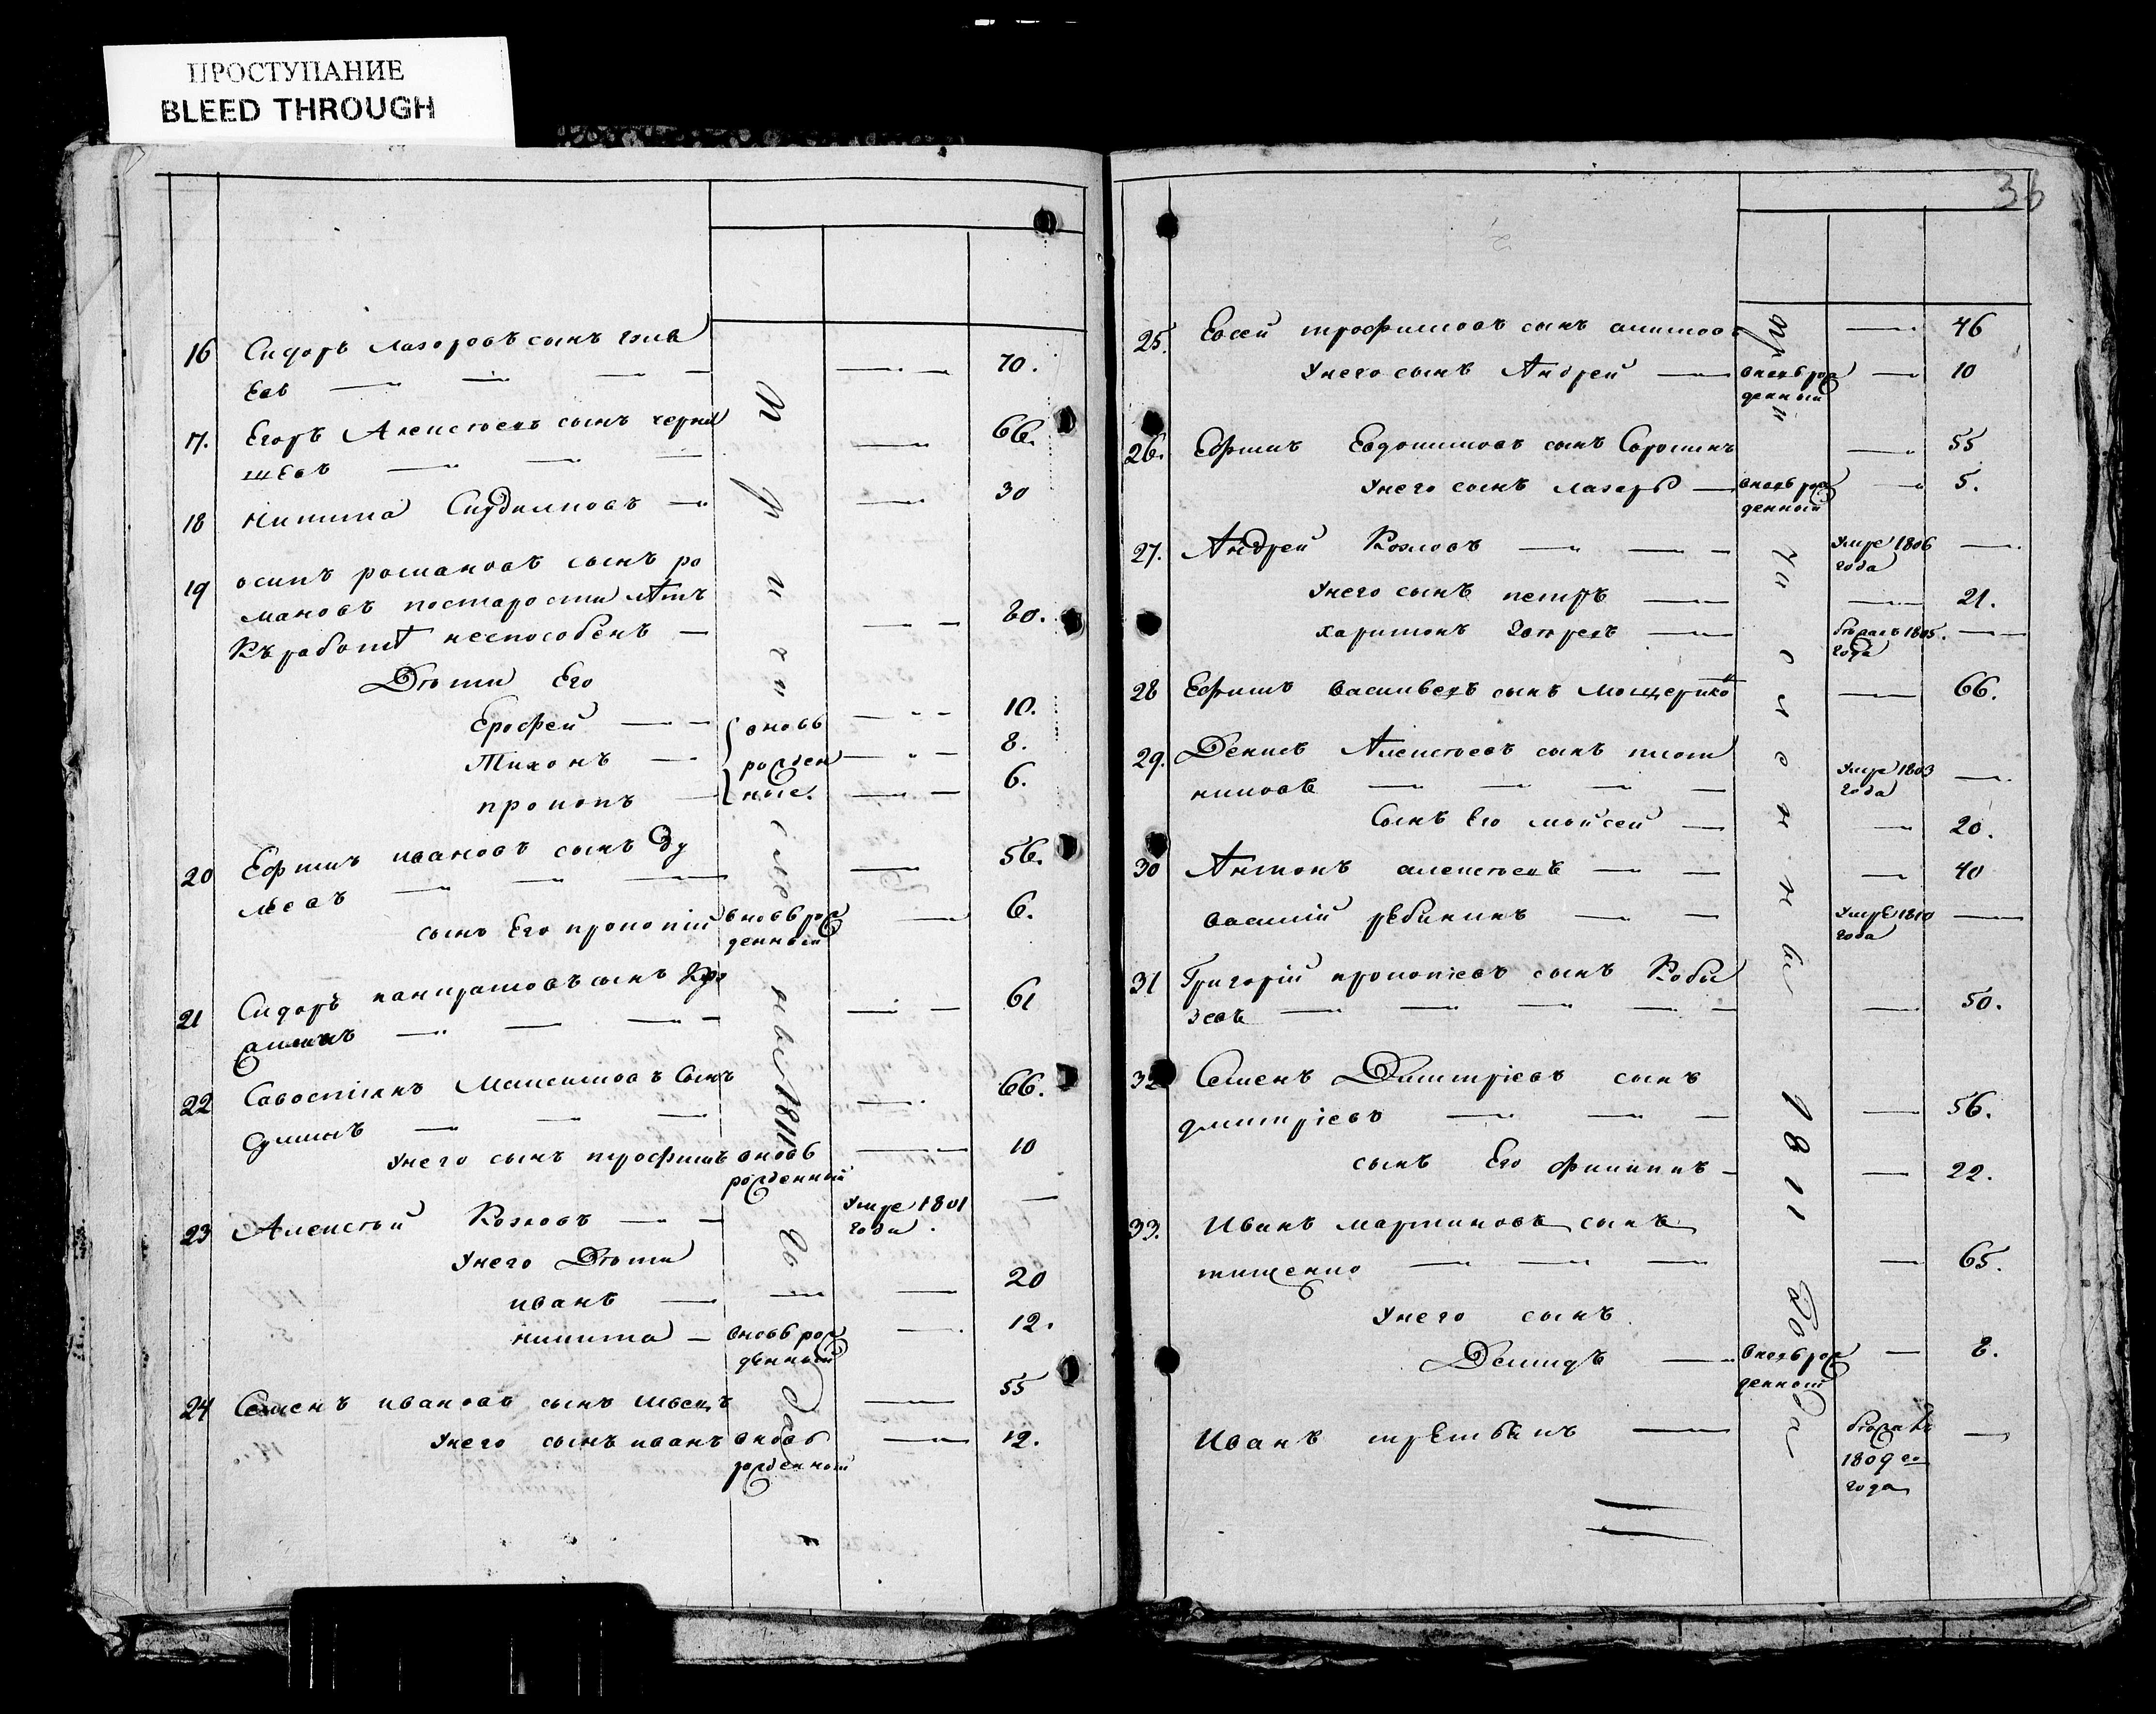 ПРОСТУПАНИЕ
BLEED THROUGH
16 Сидоръ Лазоревъ сынъ
евъ 70.
17. Егоръ Алексѣевъ сынъ черни
щевъ 66.
18 Никита 30
19 осипъ романовъ сынъ ро
мановъ постарости лѣтъ
Къ работѣ неспособенъ 80.
Дѣти Его
Ерофей вновь 10.
Тихонъ рожден 8.
прокопъ ные. 6.
20 Ефимъ ивановъ сынъ Зу
евъ 56.
сынъ Его прокопій вновь рож 6.
денный
21 Сидоръ панкратовъ сынъ
61
22 Савостіянъ Максимовъ Сынъ
66.
Унего сынъ трофимъ вновь 10
рожденный
23 Алексѣй Козловъ Умре 1801
года.
Унего Дѣти
иванъ 20
никита вновь рож 12.
денный
24 Семенъ ивановъ сынъ швецъ 55
Унего сынъ иванъ вновь 12.
рожденной
причисленные 1811 года
36
25. Евсей трофимовъ сынъ 46
Унего сынъ Андрей вновь рож 10
денный
26. Ефимъ Евдокимовъ сынъ Сорокинъ 55
Унего сынъ лазарь вновь рож 5.
денный
27. Андрей Козловъ Умре 1806
года
Унего сынъ петръ 21.
харитонъ бѣжалъ 1805.
года
28 Ефимъ васильевъ сынъ 66.
29. Денисъ Алексѣевъ сынъ плот
никовъ Умре 1803
года
Сынъ Его мойсей 20.
30 Антонъ алексѣевъ 40
василій рѣбикинъ Умре 1810
года
31 Григорій прокопіевъ сынъ Кобы
зевъ 50.
32 Семенъ Димитріевъ сынъ
дмитріевъ 56.
сынъ Его филипъ 22.
33. Иванъ мартиновъ сынъ
тищенко 65.
Унего сынъ
Демидъ вновь рож 8.
денной
Иванъ бѣжалъ
1809 го
года
причисленны 1811 года